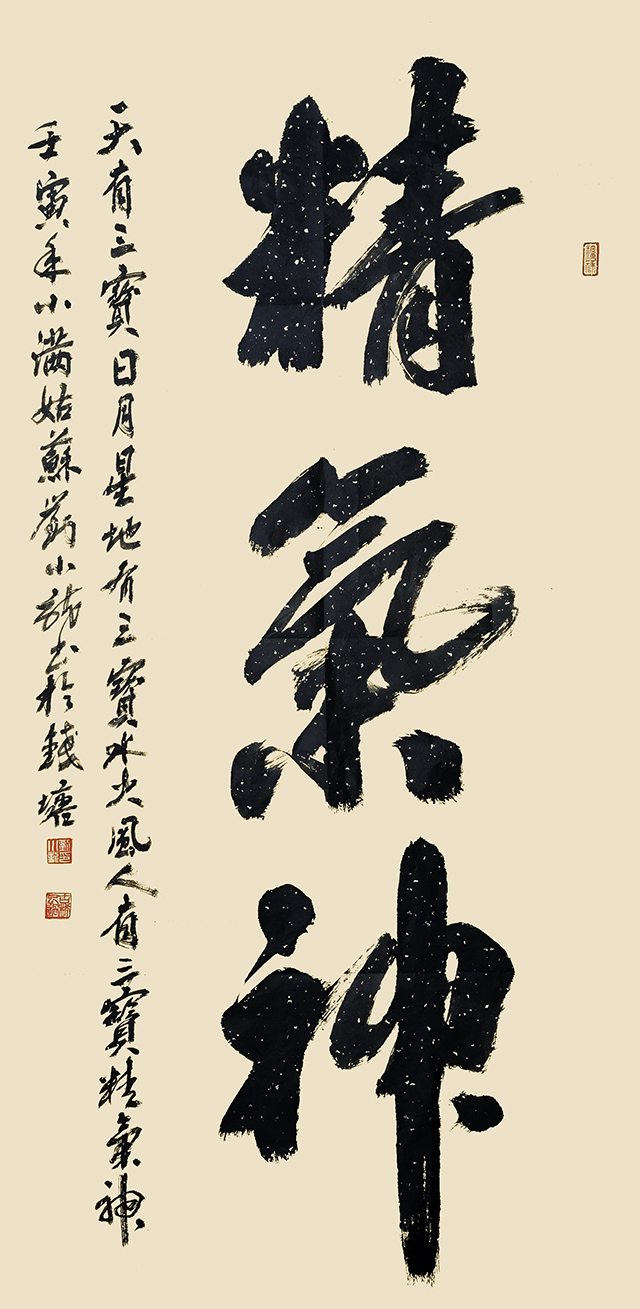 精氣神
天有三寶日月星地有三寶水火風人有三寶精氣神
壬寅年小滿姑蘇劉小詩書於錢塘